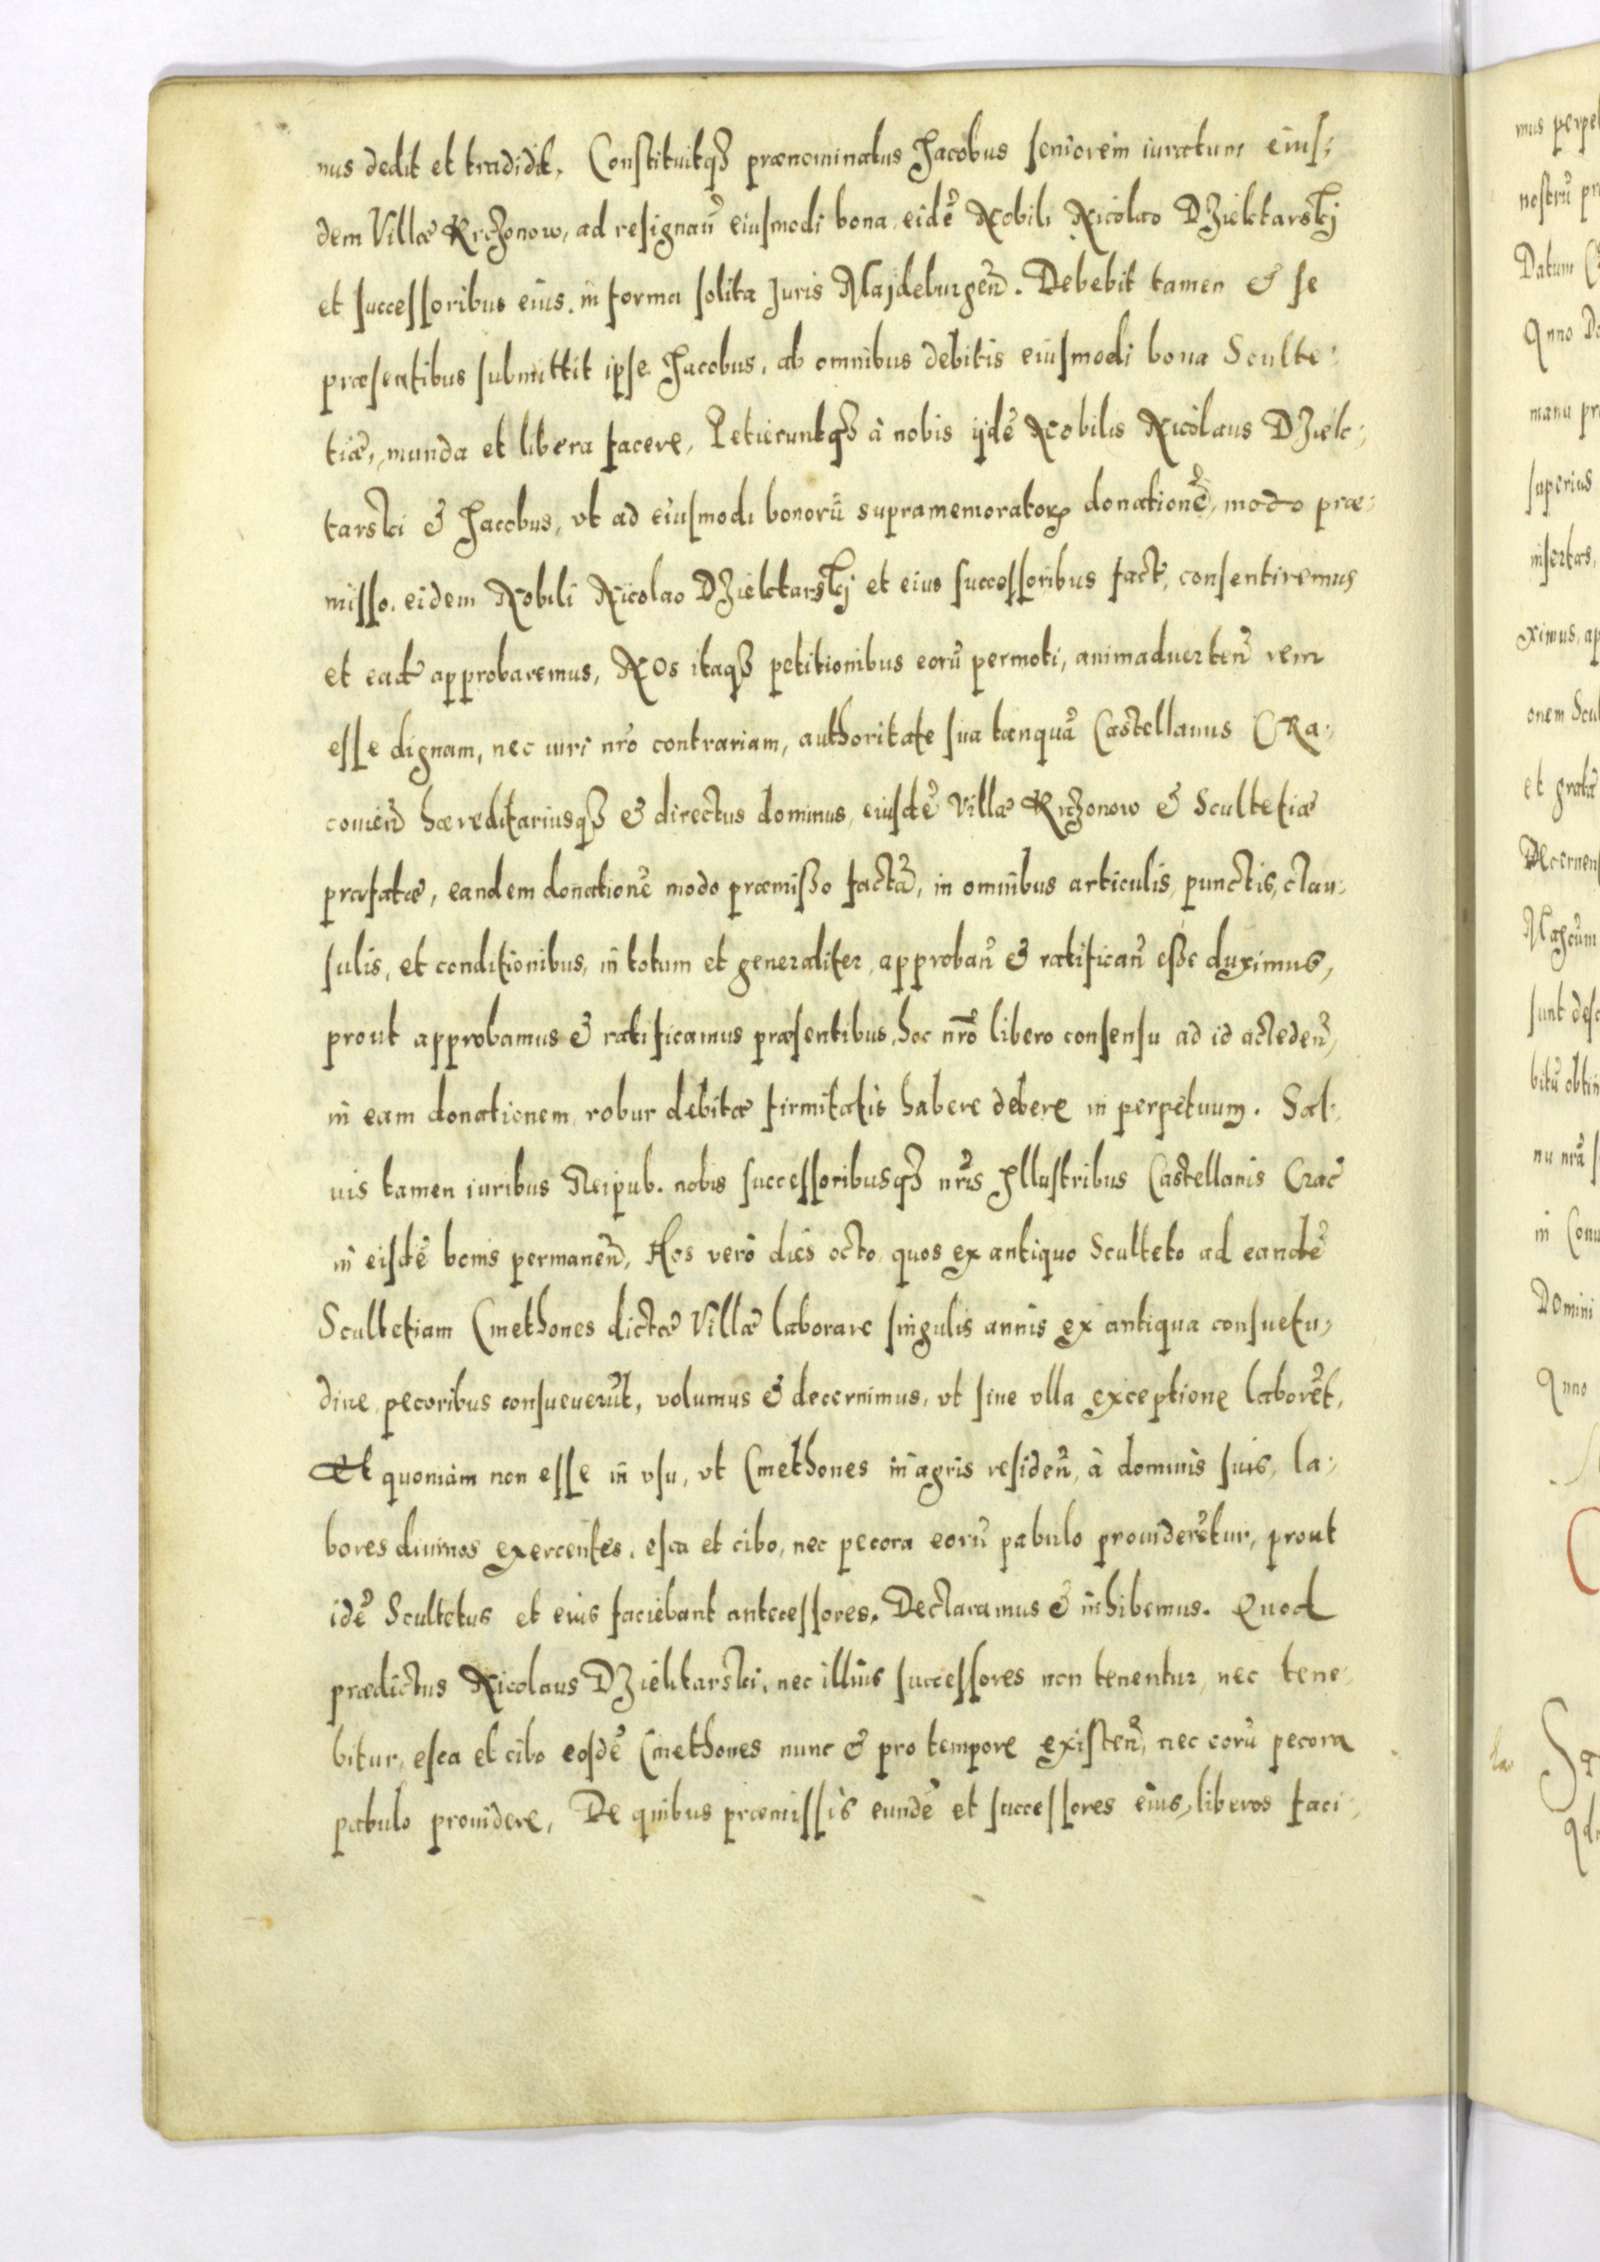 nus dedit et tradidit, Constituitqȝ prænominatus Jacobus seniorem iuratum eius,
dem Villæ Krczonow, ad resignan̄ eiusmodi bona eidē Nobili Nicolao Dzielctarskj
et successoribus eius, in forma solita Juris Majdeburgen̄. Debebit tamen & se
præsentibus submittit ipse Jacobus, ab omnibus debitis eiusmodi bona Sculte:
tiæ, munda et libera facere, Petieruntqȝ à nobis ijdē Nobilis Nicolaus Dzielc:
tarski & Jacobus, vt ad eiusmodi bonorū supramemoratoꝝ donationē, modo præ:
misso, eidem Nobili Nicolao Dzielctarskj et eius successoribus fact̄, consentiremus
et ead̄ approbaremus, Nos itaqȝ petitionibus eorū permoti, animaduerten̄ rem
esse dignam, nec iuri nr̄o contrariam, authoritate sua tanquā Castellanus Cra:
couien̄ hæreditariusqȝ & directus dominus, eiusdē Villæ Krczonow & Scultetiæ
præfatæ, eandem donationē modo præmißo factā, in omnibus articulis, punctis, clau:
sulis, et conditionibus, in totum et generaliter, approban̄ & ratifican̄ eße duximus,
prout approbamus & ratificamus præsentibus, hoc nr̄o libero consensu ad id acceden̄,
in eam donationem, robur debitæ firmitatis habere debere in perpetuum. Sal:
uis tamen iuribus Reipub. nobis successoribusqȝ nr̄is Jllustribus Castellanis Crac̄
in eisdē bonis permanen̄, Hos verò dies octo quos ex antiquo Sculteto ad eandē
Scultetiam Cmethones dictæ Villæ laborare singulis annis ex antiqua consuetu:
dine pecoribus consueuerūt, volumus & decernimus, vt sine vlla exceptione laborēt,
Et quoniam non esse in vsu, vt Cmethones in agris residen̄, à dominis suis, la:
bores diurnos exercentes, esca et cibo, nec pecora eorū pabulo prouiderētur, prout
idē Scultetus et eius faciebant antecessores, Declaramus & inhibemus. Quod
prædictus Nicolaus Dzielctarski, nec illius successores non tenentur, nec tene:
bitur, esca et cibo eosdē Cmethones nunc & pro tempore existen̄, nec eorū pecora
pabulo prouidere, De quibus præmissis eundē et successores eius, liberos faci: